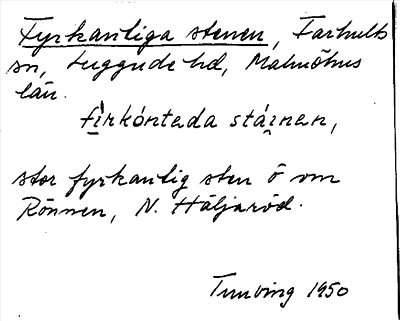 Fyrkantiga stenen, Farhults
sn, Luggude hd, Malmöhus
län.
fìrkántada stáinen,
stor fyrkantig sten ö om
Rönnen, N. Häljaröd.
Tunving 1950